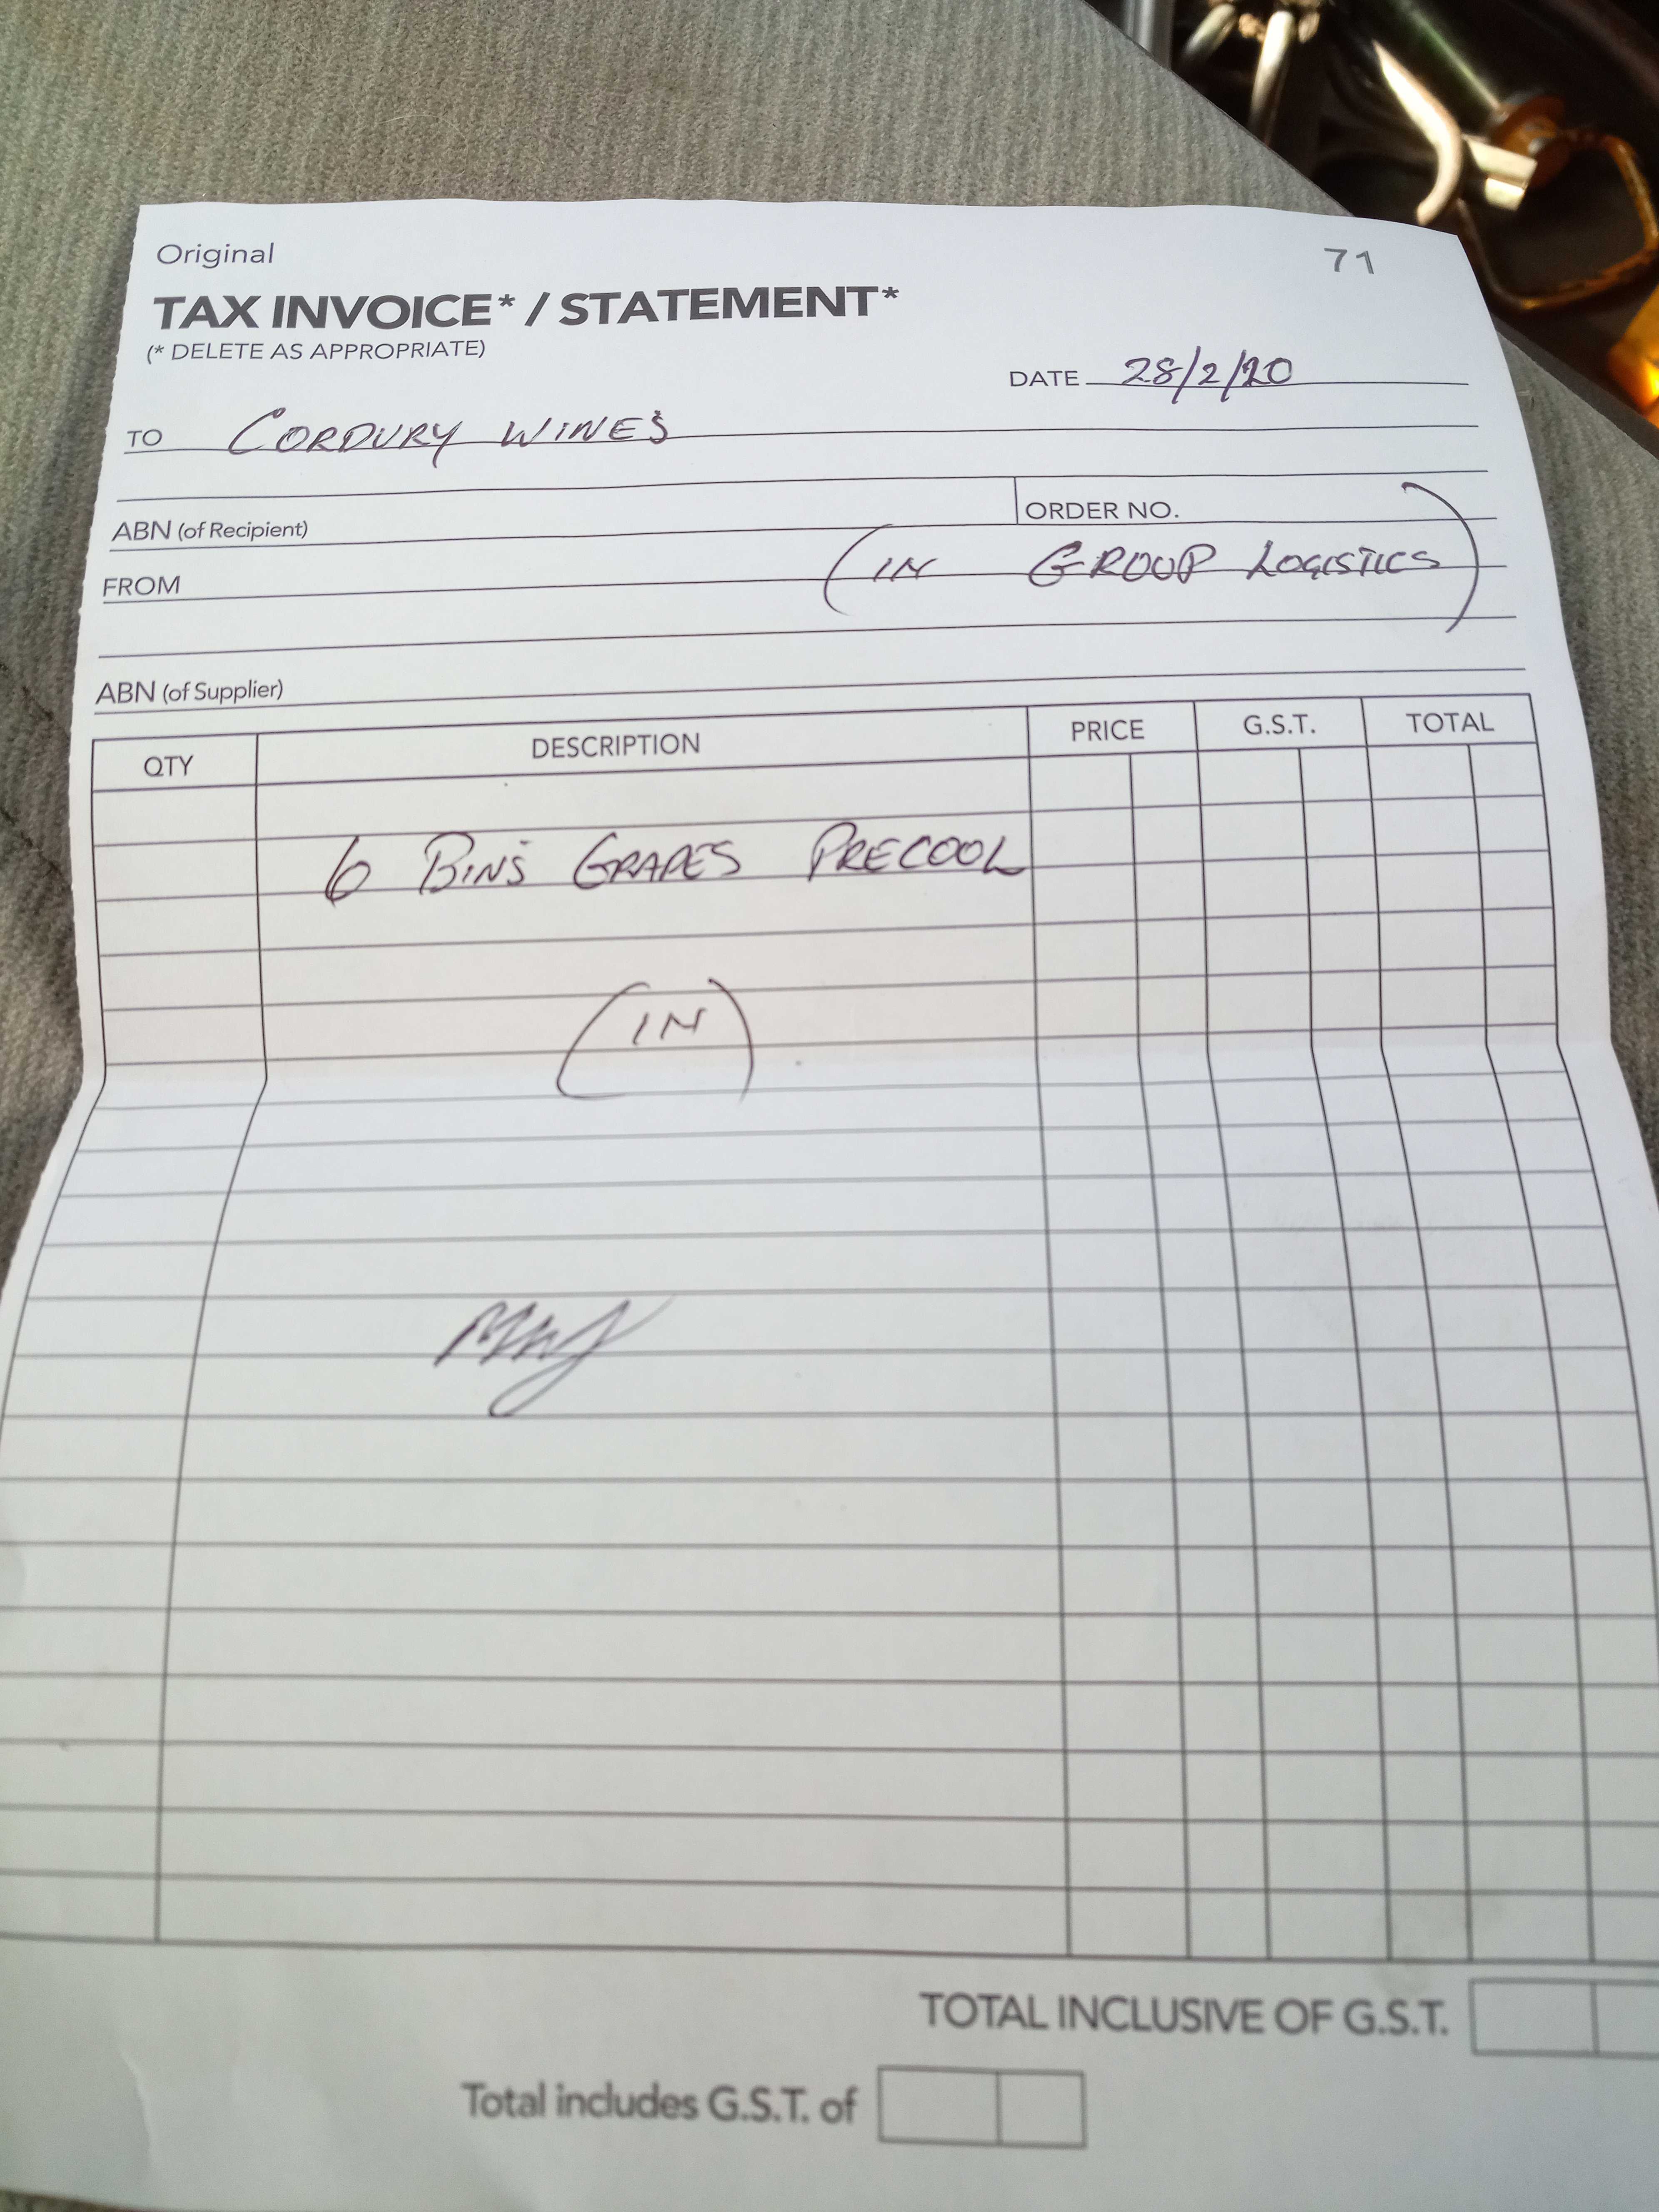 Original
71
TAX INVOICE* / STATEMENT*
(* DELETE AS APPROPRIATE)
DATE 28/2/20
TO CORDURY WINES
ORDER NO.
ABN (of Recipient)
(IN GROUP LOGISTICS)
FROM
ABN (of Supplier)
QTY DESCRIPTION PRICE G.S.T. TOTAL
6 BINS GRAPES PRECOOL
(IN)
TOTAL INCLUSIVE OF G.S.T.
Total includes G.S.T. of